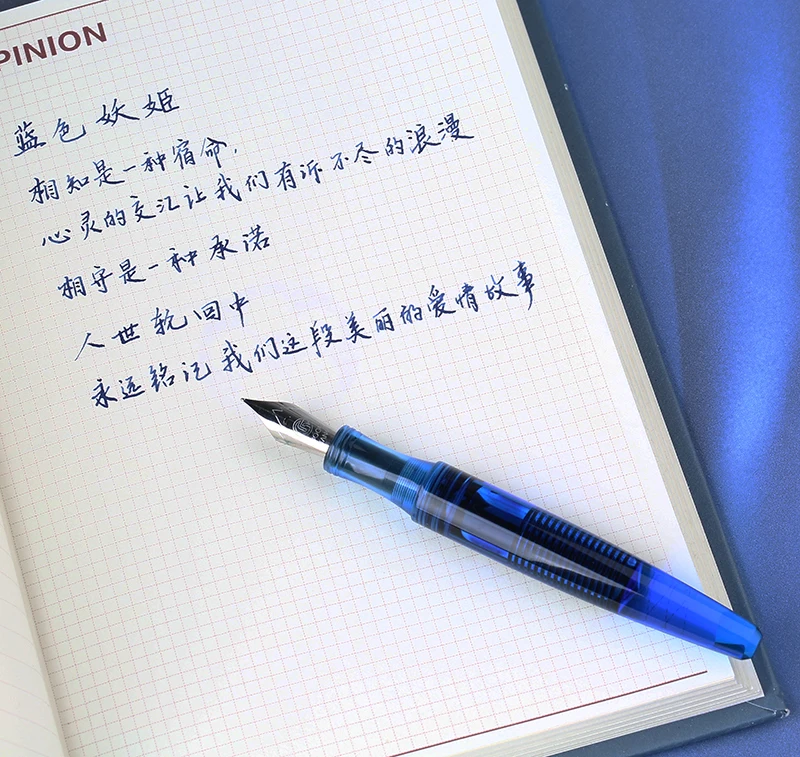 PINION
蓝色妖姬
相知是一种宿命,
心灵的交汇让我们有诉不尽的浪漫
相守是一种承诺
人世轮回中
永远铭记我们这段美丽的爱情故事